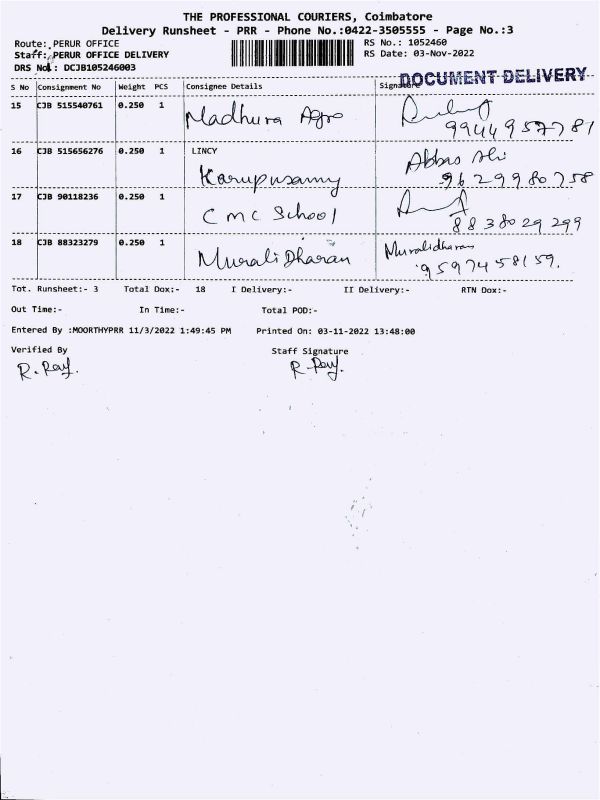 THE PROFESSIONAL COURIERS, Coimbatore
Delivery Runsheet - PRR - Phone No.:0422-3505555 - Page No.:3
Route: PERUR OFFICE RS No.: 1052460
Staff: PERUR OFFICE DELIVERY RS Date: 03-Nov-2022
DRS No.: DCJB105246003
DOCUMENT DELIVERY
S No Consignment No Weight PCS Consignee Details Signature
15 CJB 515540761 0.250 1 Madhura Agro
9944957781
16 CJB 515656276 0.250 1 LINCY Abbas Ali
Karupusamy 9629980758
17 CJB 90118236 0.250 1 CMC School
8838029299
18 CJB 88323279 0.250 1 MuraliDharan Muralidharan
9597458159.
Tot. Runsheet:- 3 Total Dox:- 18 I Delivery:- II Delivery:- RTN Dox:-
Out Time:- In Time:- Total POD:-
Entered By :MOORTHYPRR 11/3/2022 1:49:45 PM Printed On: 03-11-2022 13:48:00
Verified By Staff Signature